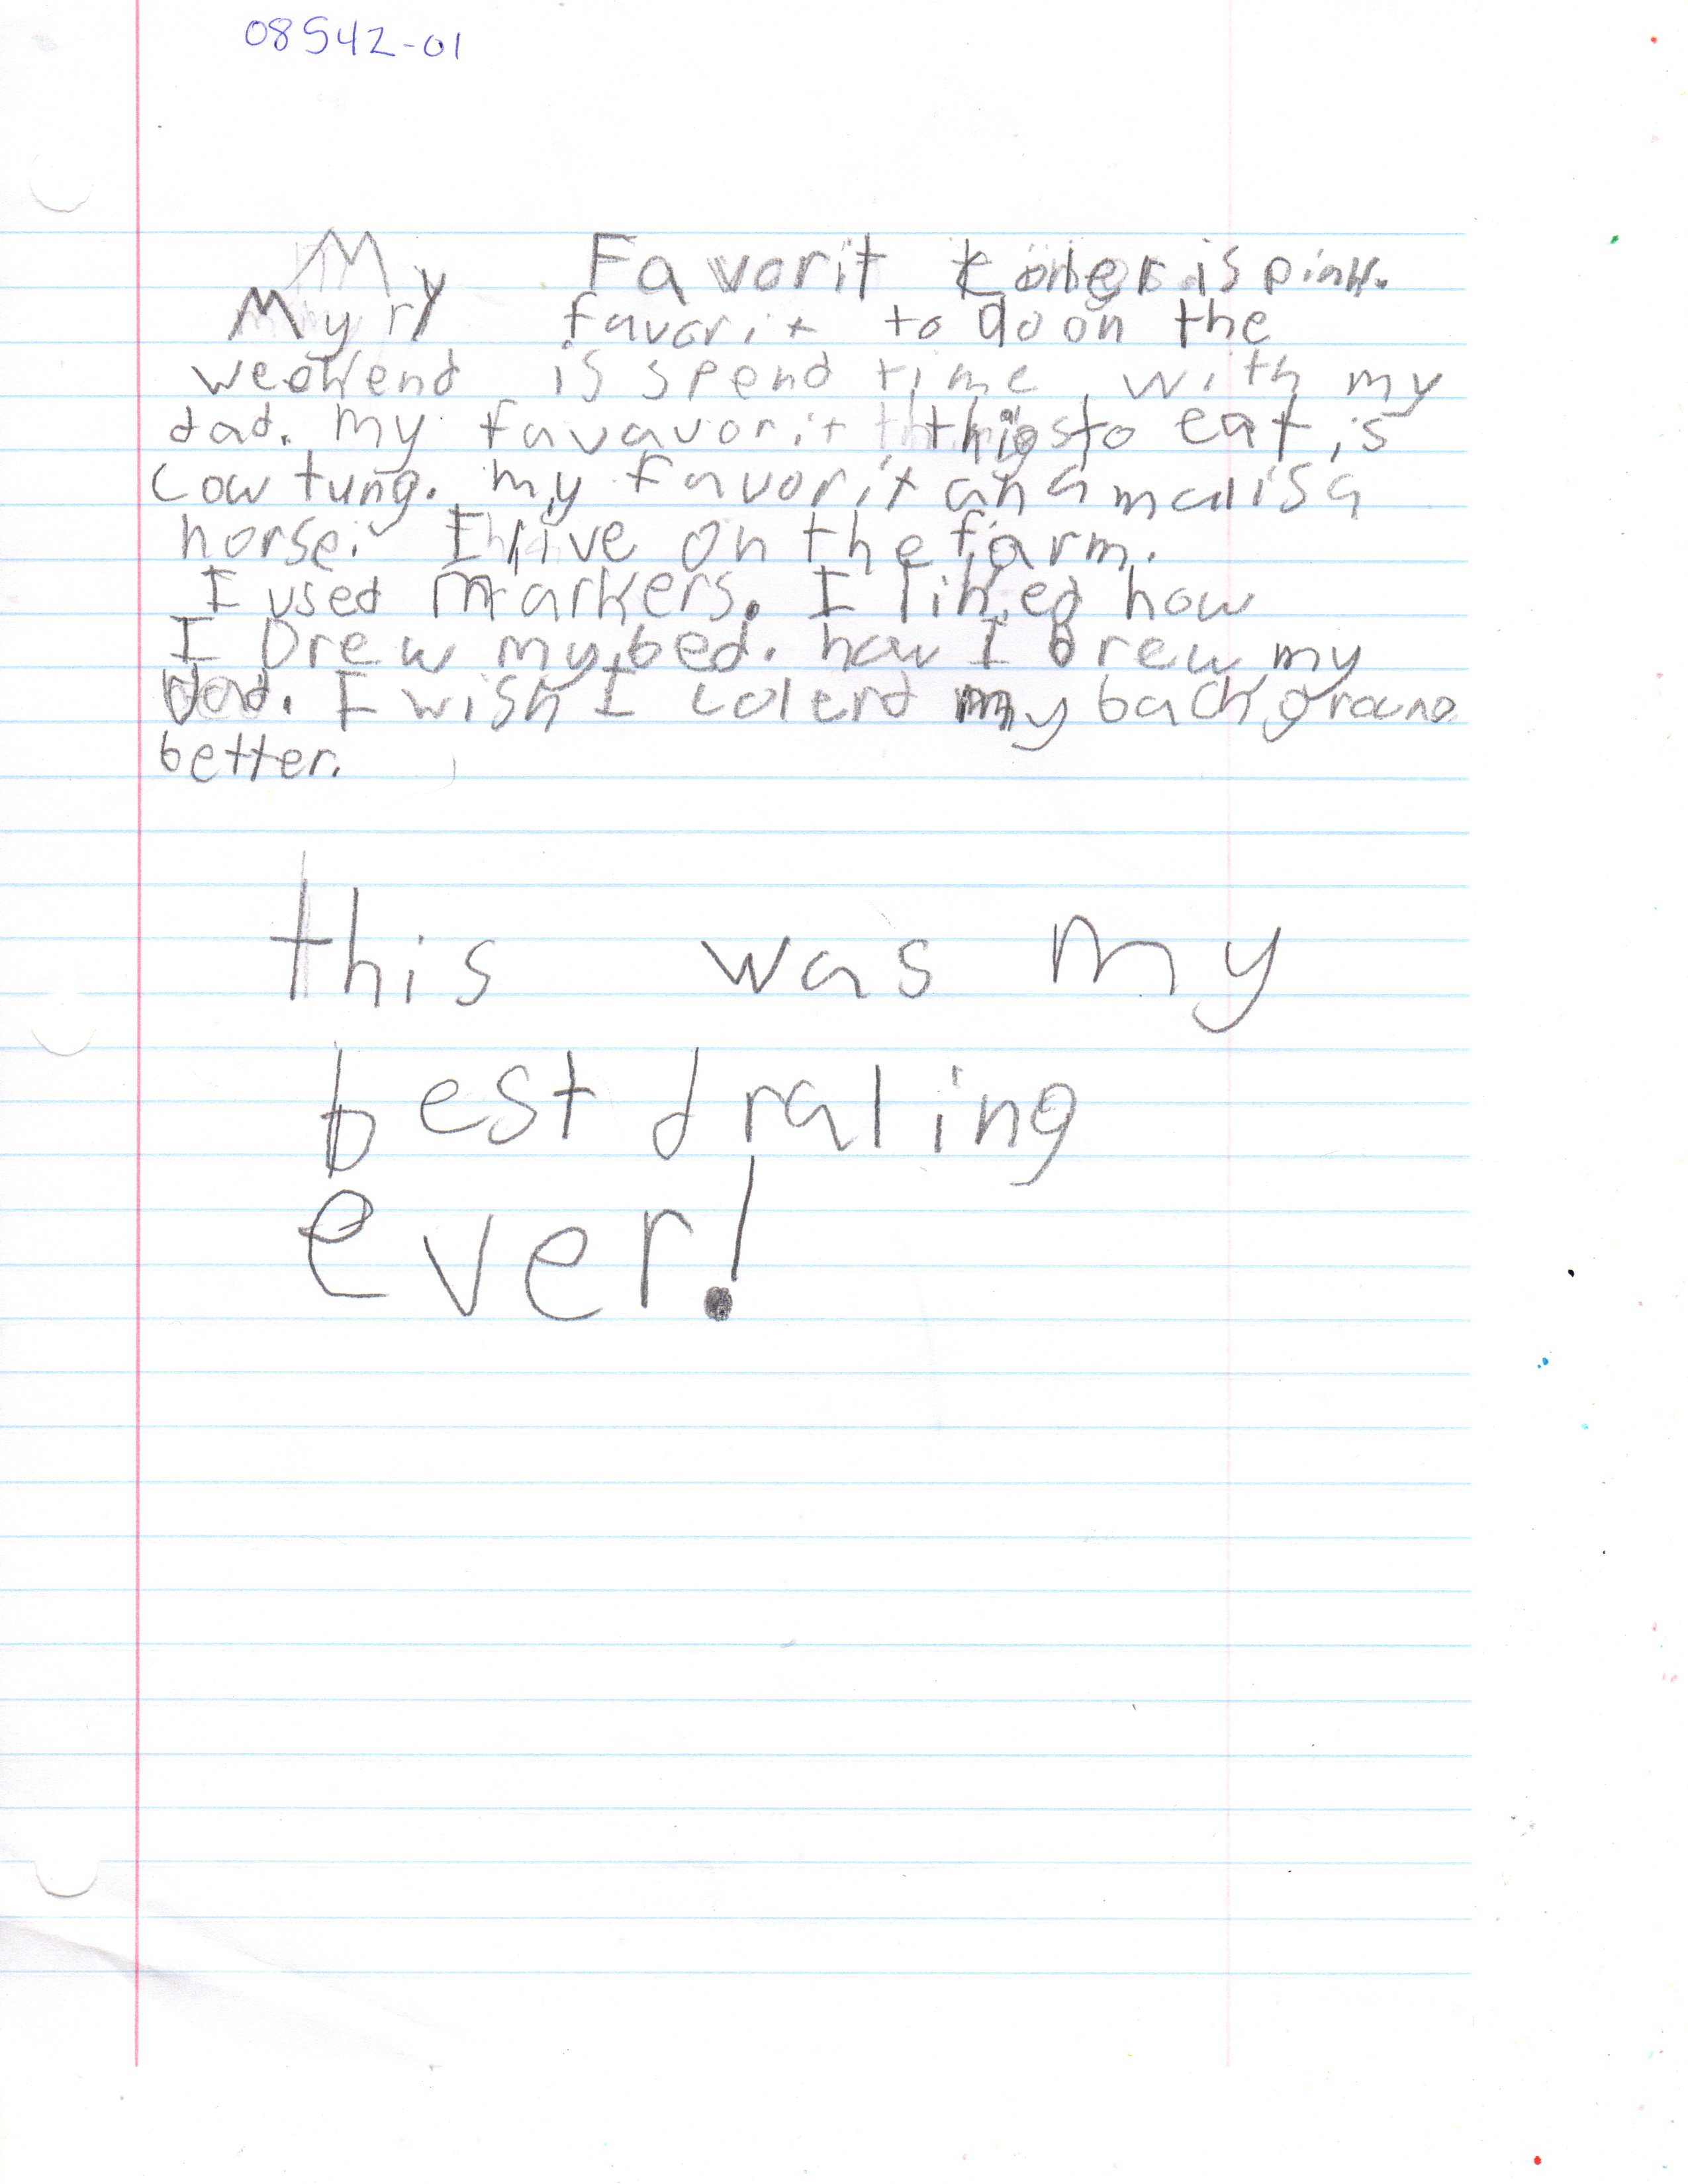 08542-01
My Favorit coler is pink.
My favorit to do on the
weekend is spend time with my
dad. my favavorit thigs to eat is
cow tung. my favorit anamal is a
horse. I live on the farm.
I used markers. I liked how
I Drew my bed. how I Drew my
dad. I wish I colerd my background
better.
this was my
best draling
ever!